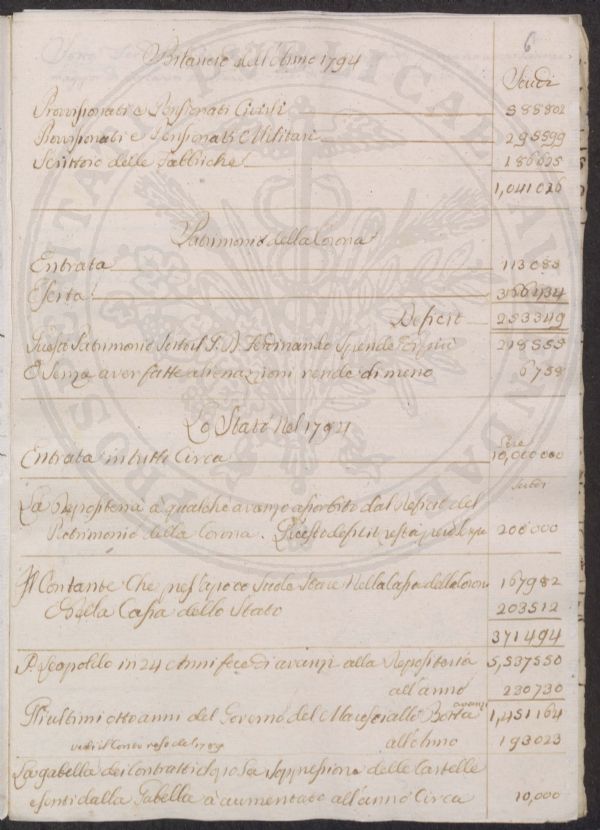 6
Bilancio dell'Anno 1794
Scudi
Provisionati e Pensionati Civili 588802
Provisionati e Pensionati Militari 295599
Scrittoio delle Fabbriche 186625
1,041026
Patrimonio della Corona
Entrata 113085
Escita 366434
Deficit 253349
Questo Patrimonio sotto il P. Ferdinando spende di più 218555
E senza aver fatte alienazioni rende di meno 6758
Lo Stato nel 1794
Lire
Entrata in tutto Circa 10,000000
Scudi
La Depositeria à qualche avanzo assorbito dal Deficit del
Patrimonio della Corona. Questo deficit resta 200000
Il Contante Che nella Cassa della Corona 167982
E nella Cassa dello Stato 203512
371494
P. Leopoldo in 24 Anni fece di avanzi alla Depositeria 5,537550
all'anno 230730
Gl'ultimi otto anni del Governo del Maresciallo Botta avanzi 1,451164
vedi il Conto reso del 1789 all'Anno 193023
La gabella dei Contratti dopo la soppressione delle Cartelle
esenti dalla Gabella à aumentato all'anno Circa 10,000